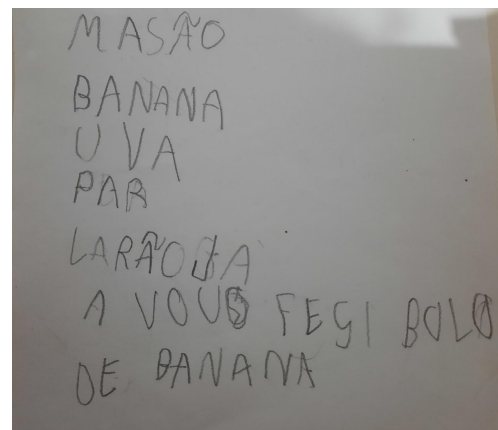 MASÃO
BANANA
UVA
PAR
LARÃOJA
A VOUS FEGI BOLO
DE BANANA